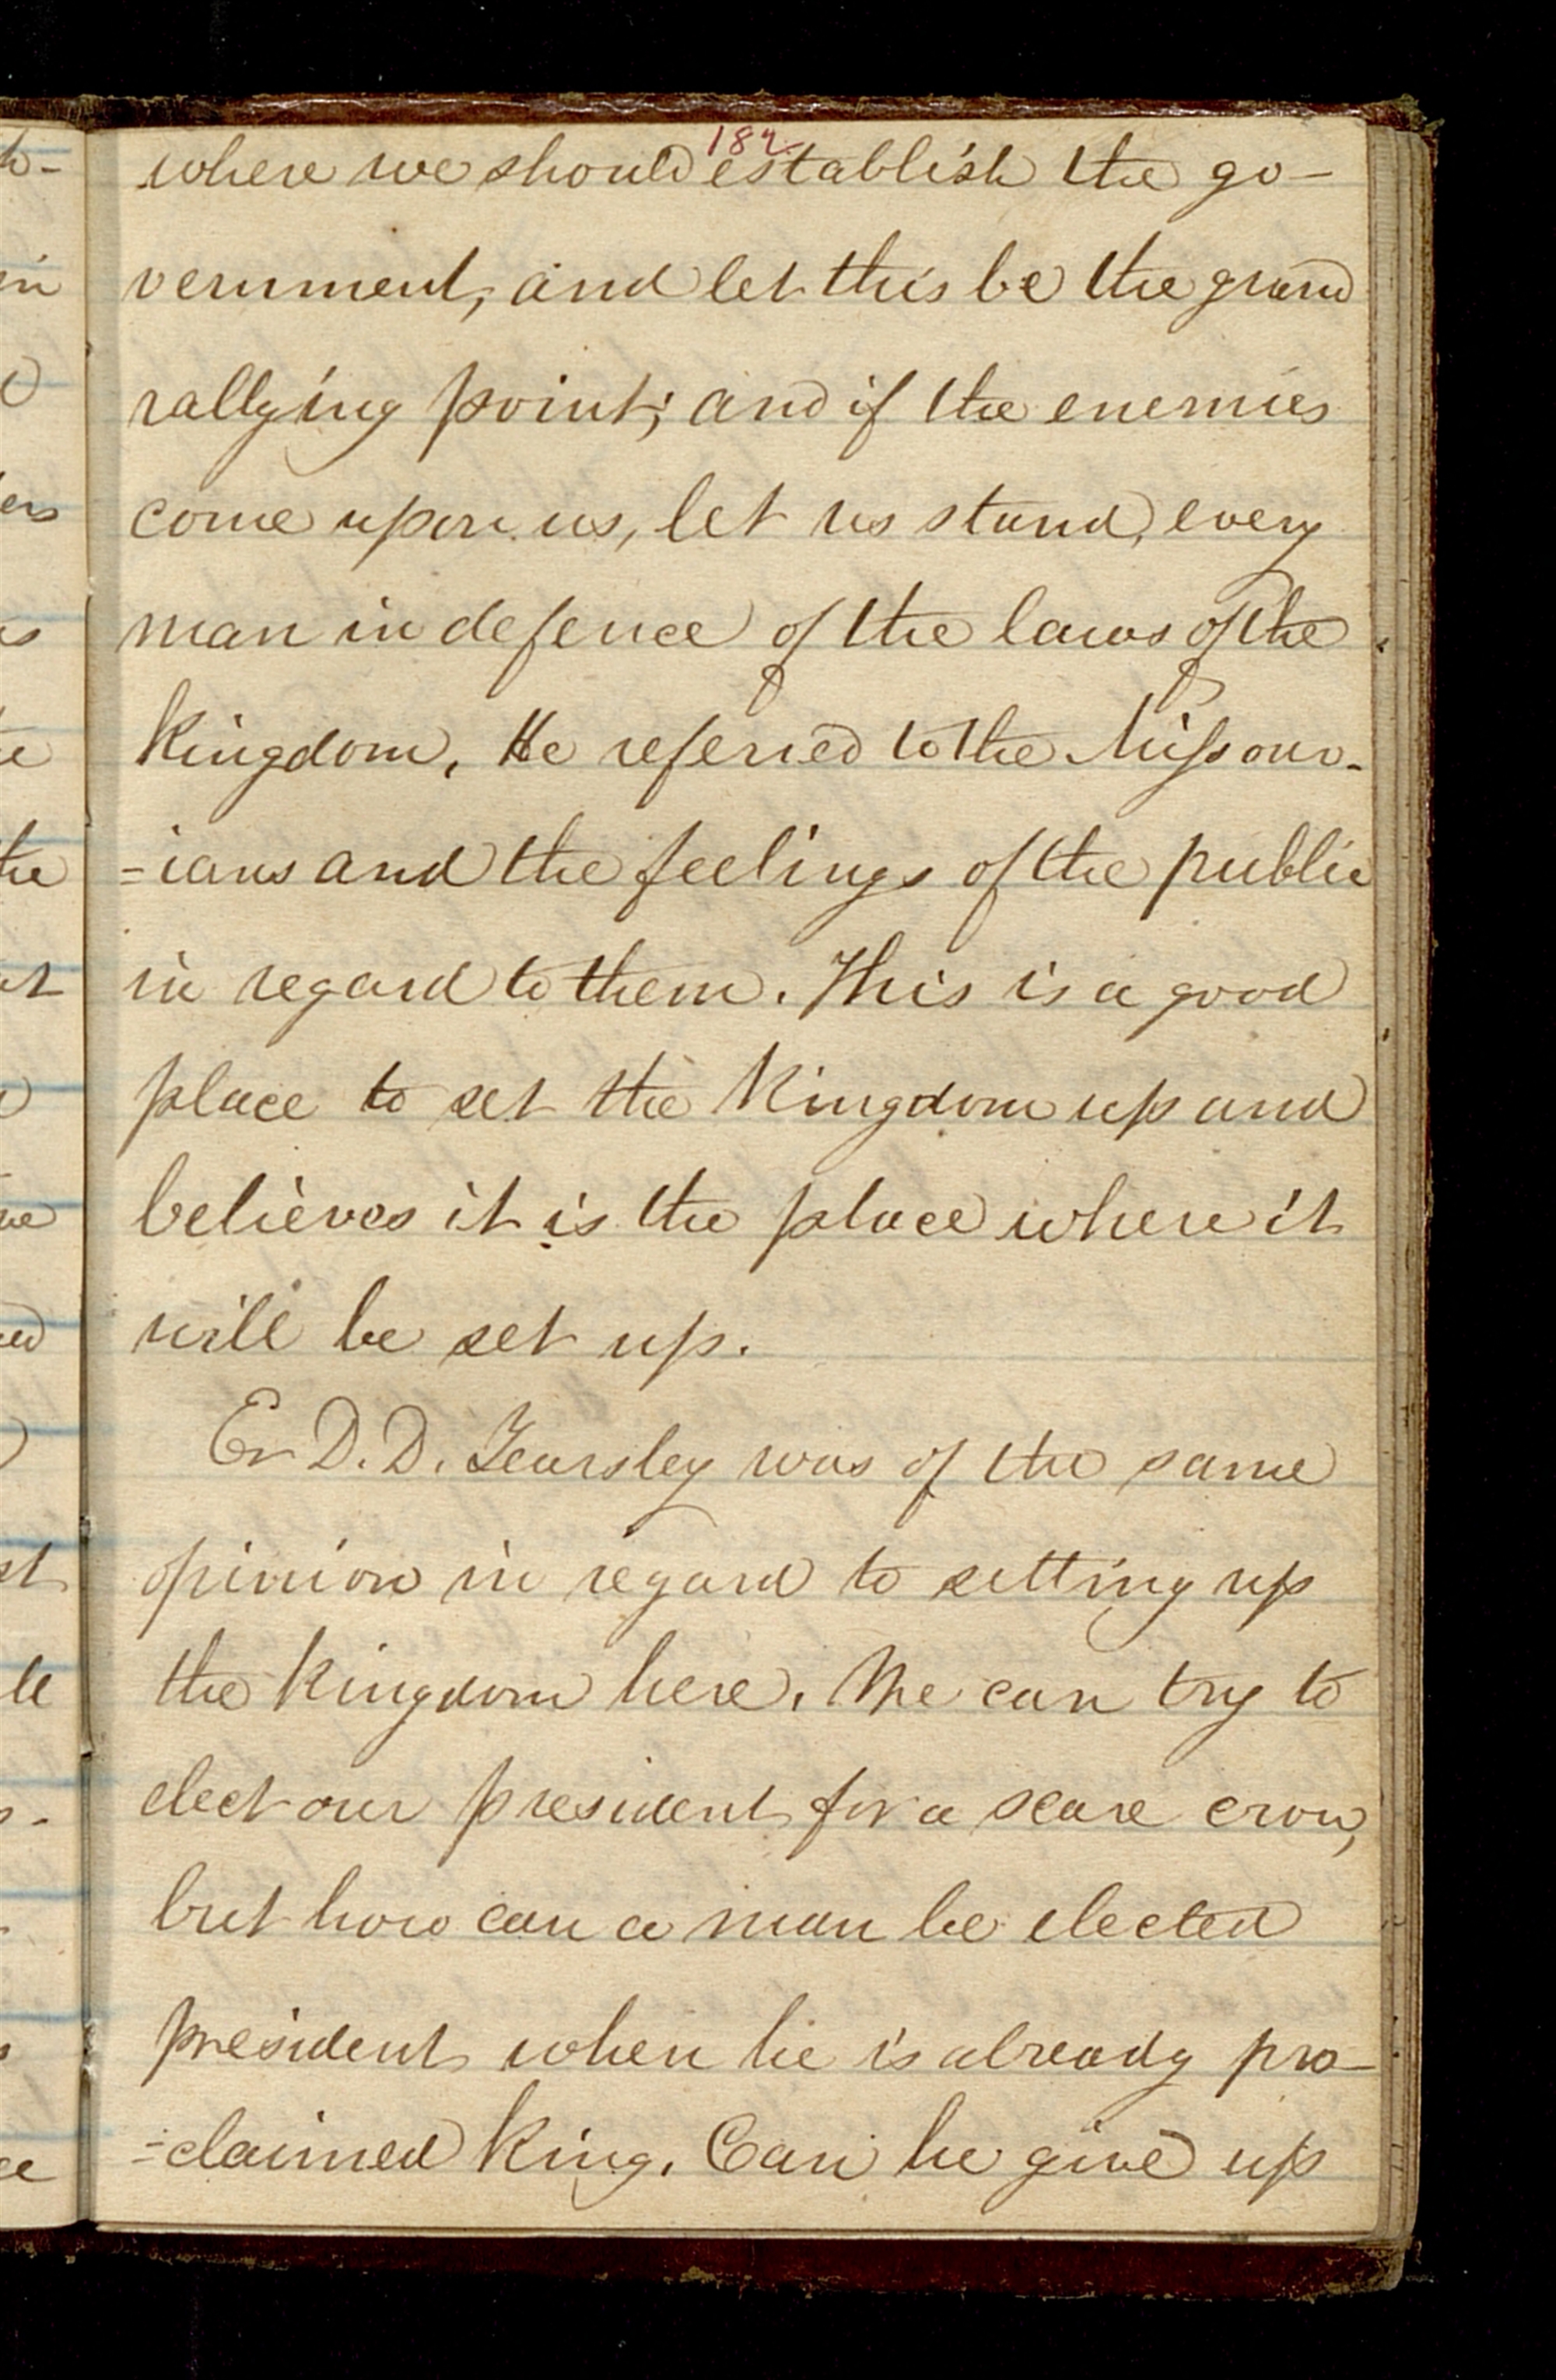 182
where we should establish the go-
vernment, and let this be the grand
rallying point; and if the enemies
come upon us, let us stand, every
man in defence of the laws of the
Kingdom. He referred to the Missour-
=ians and the feelings of the public
in regard to them. This is a good
place to set the Kingdom up and
believes it is the place where it
will be set up.
Er D. D. Yearsley was of the same
opinion in regard to setting up
the Kingdom here. We can try to
elect our president for a scare crow,
but how can a man be elected
president when he is already pro-
=claimed King. Can he give up